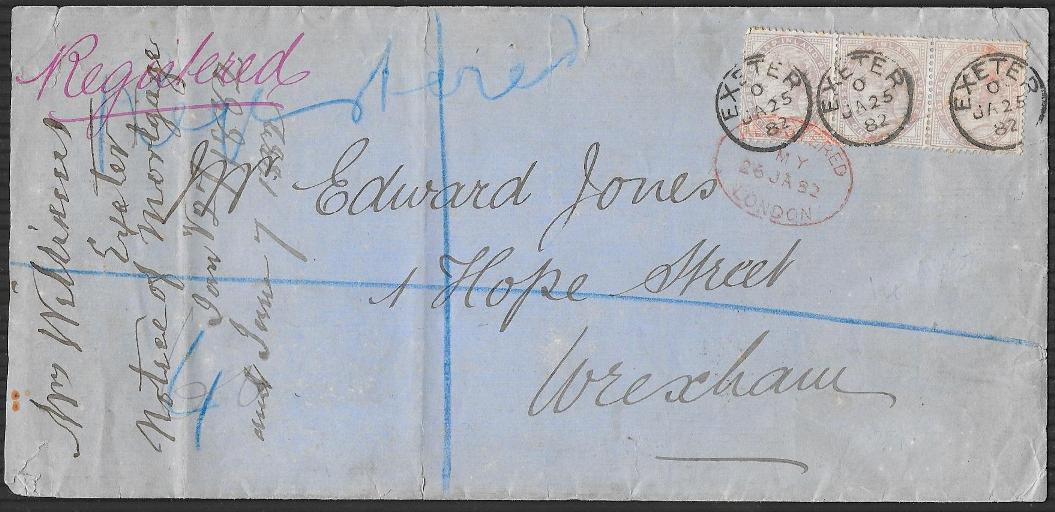 Registered
Registered
EXETER
O
JA 25
82
EXETER
O
JA 25
82
EXETER
O
JA 25
82
REGISTERED
MY
26 JA 82
LONDON
Mr Edward Jones
1 Hope Street
Wrexham
Exeter
Notice of Mortgage
Jan
and June 7 1882